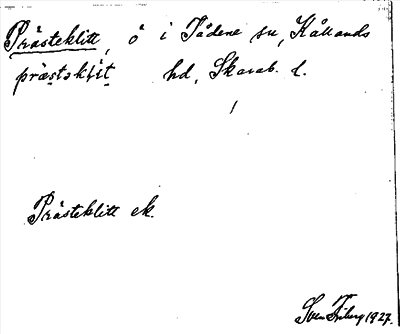 Prästeklitt, ö i Tådene sn, Kållands
præstəklit hd, Skarab. l.
Prästeklitt ek.
Sven 1927.